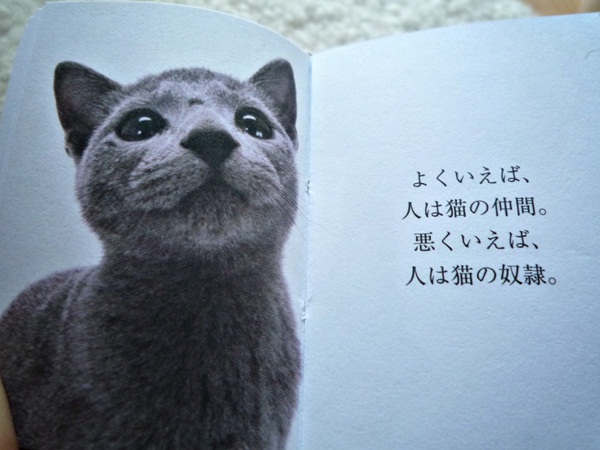 よくいえば、
人は猫の仲間。
悪くいえば、
人は猫の奴隷。